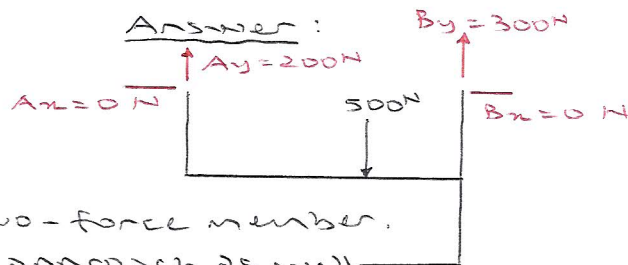 Answer :
By=300N
Ay=200N
Ax=0 N
500N
Bx=0 N
two-force member.